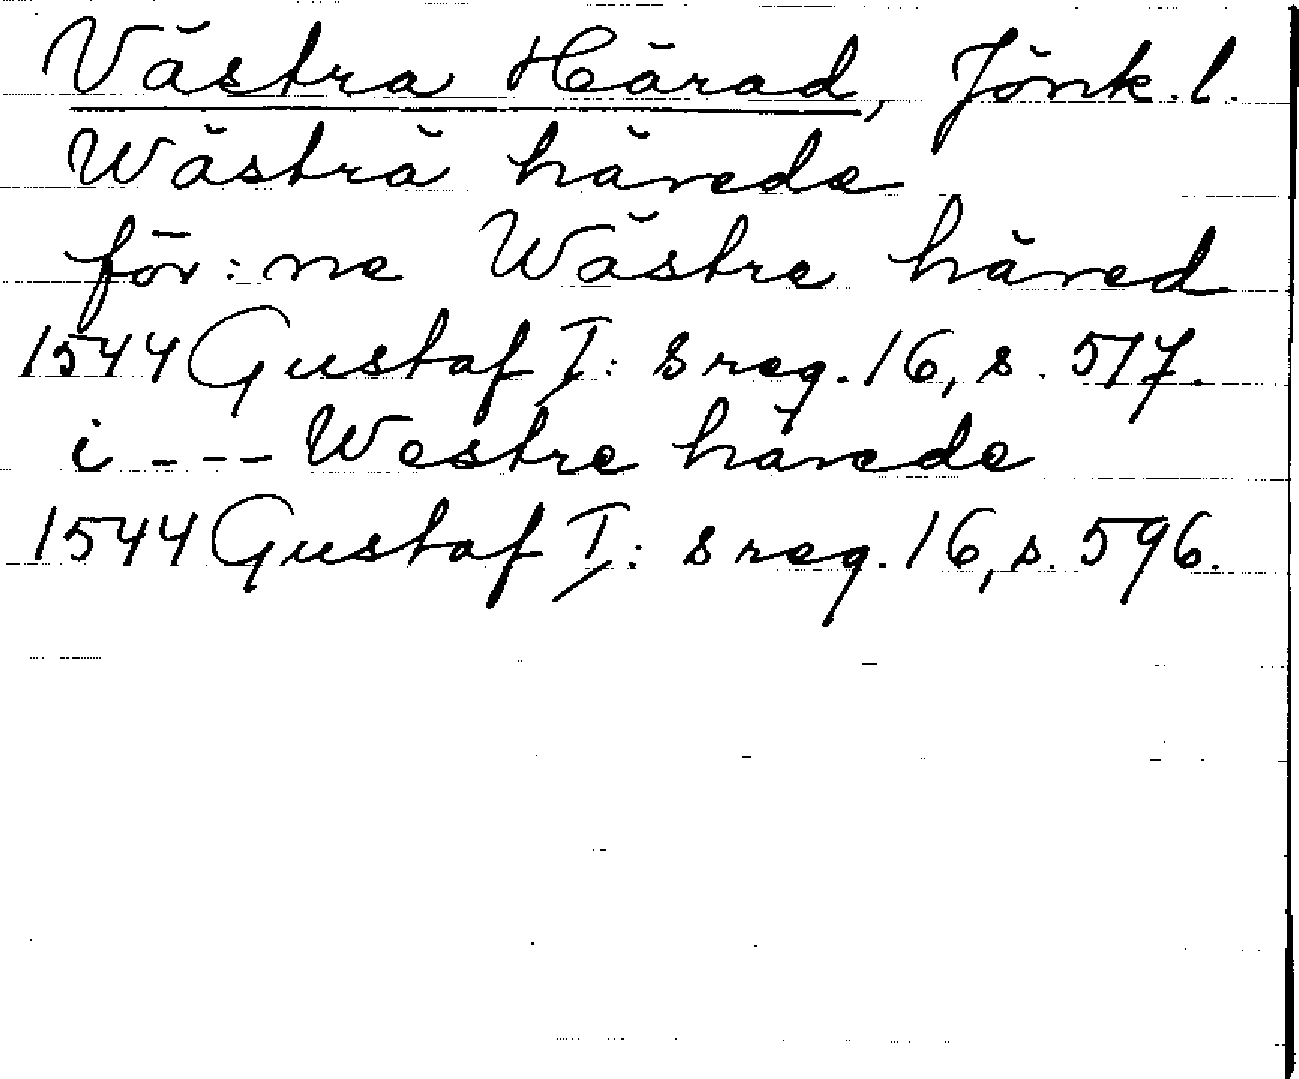 Västra Härad, Jönk. l.
Wästrä härede
för:ne Wästre häred
1544 Gustaf I: s reg. 16, s. 517.
i --- Westre härede
1544 Gustaf I: s reg. 16, s. 596.